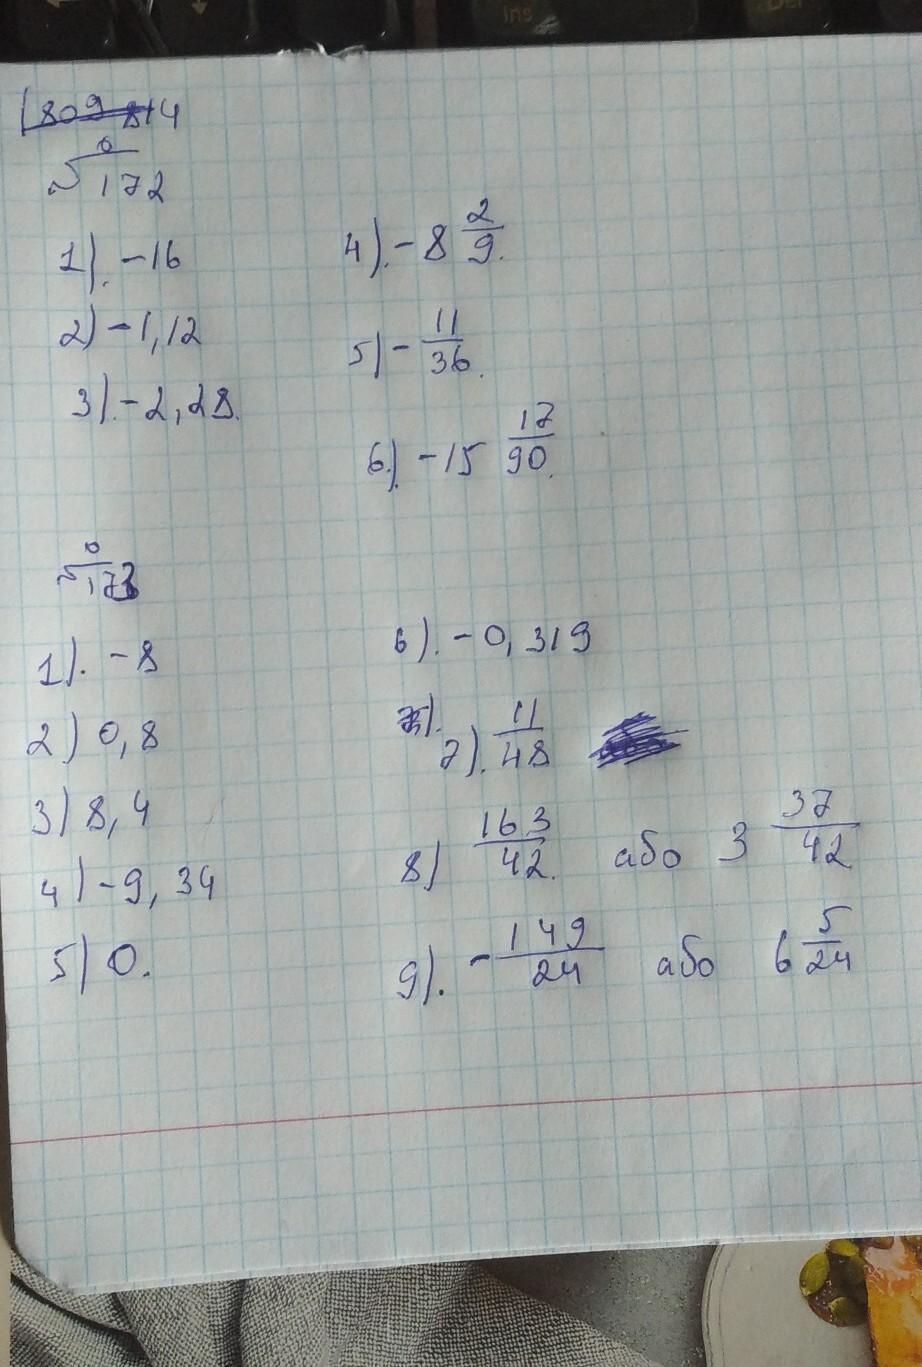 Ins
Del
809 814
№ 172
1). -16
2) -1,12
3). -2,28.
4). -8 2/9.
5) - 11/36.
6). -15 17/90.
№ 173
1). -8
2) 0,8
3) 8,4
4) -9,34
5) 0.
6). -0,319
7). 11/48
8) 163/42. або 3 37/42
9). - 149/24 або 6 5/24